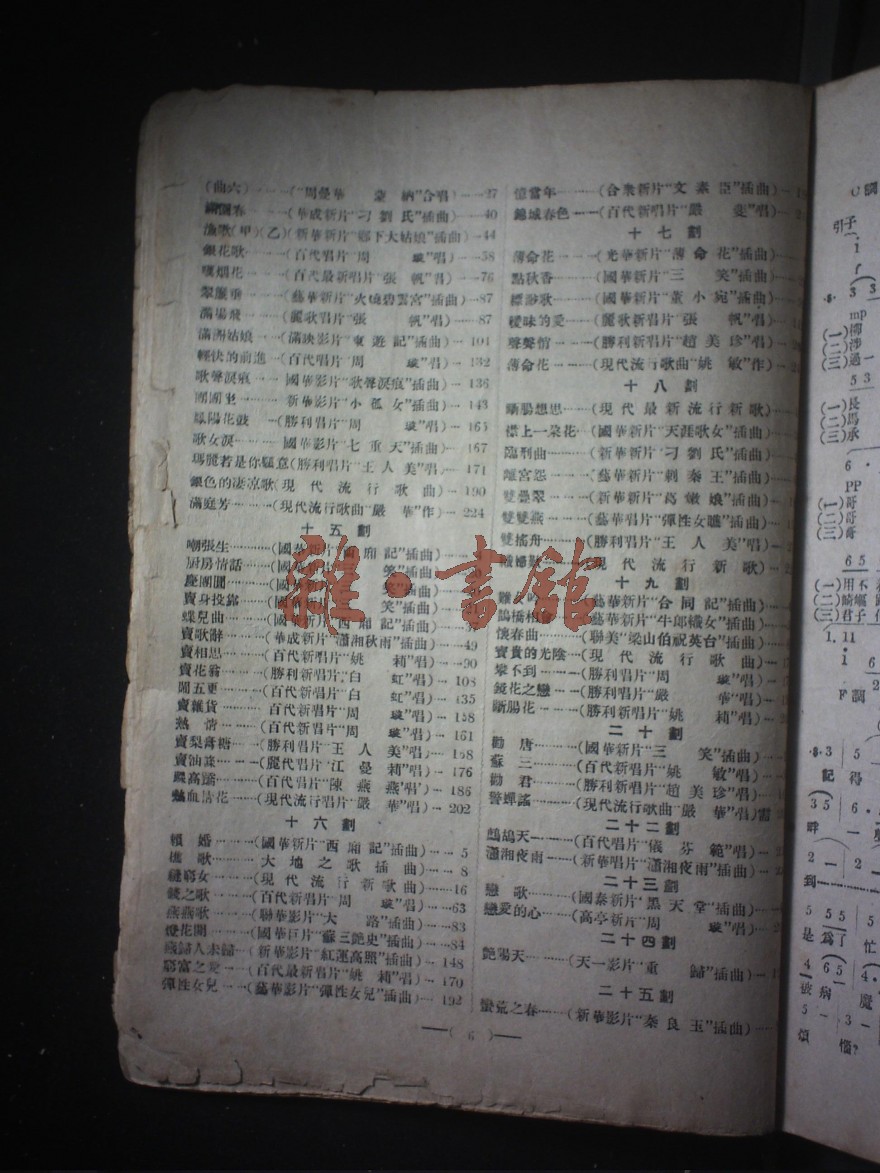 (曲六)………("周曼華　　納"合唱)…37
春……(華成新片"刁劉氏"插曲)…40
漁歌(甲)(乙)(新華新片"鄉下大姑娘"插曲)…44
銀花歌……(百代唱片"周　　璇"唱)…58
嘆烟花……(百代最新唱片"張　　帆"唱)…76
翠簾垂……(藝華新片"火燒碧雲宮"插曲)…87
滿場飛……(麗歌唱片"張　　帆"唱)……87
滿洲姑娘……(滿映影片"東遊記"插曲)…101
輕快的前進…(百代唱片"周　　璇"唱)…132
歌聲淚痕……國華影片"歌聲淚痕"插曲)…136
團圓……新華影片"小孤女"插曲)…143
鳳陽花鼓…(勝利唱片"周　　璇"唱)…165
歌女淚……國華影片"七重天"插曲)…167
瑪麗若是你願意(勝利唱片"王人美"唱)…171
銀色的凄凉歌(現代流行歌曲)…190
滿庭芳……(現代流行歌曲"嚴　　華"作)…224
十五劃
嘲張生………(國華新片"西廂記"插曲)
厨房情話……(國華新片"　　笑"插曲)
慶團圓………(國華新片"　　笑"插曲)
賣身投靠……(國華新片"　　笑"插曲)
蝶兒曲………(國華新片"西廂記"插曲)
賣歌辭………(華成新片"瀟湘秋雨"插曲)…49
賣相思………(百代新唱片"姚　　莉"唱)…90
賣花翁………(勝利新唱片"白　　虹"唱)…108
鬧五更………(百代新唱片"白　　虹"唱)…135
賣雜貨……百代新唱片"周　　璇"唱)…158
熱　情……(百代新唱片"周　　璇"唱)…161
賣梨膏糖…(勝利唱片"王人美"唱)…168
賣油……(麗代唱片"江曼莉"唱)…176
高蹻……(百代唱片"陳燕燕"唱)…186
熱血情花……(現代流行唱片"嚴　　華"唱)…202
十六劃
賴　婚………(國華新片"西廂記"插曲)……5
樵　歌………大地之歌插曲)……8
縫窮女……(現代流行新歌曲)…16
錢之歌……(百代新唱片"周　　璇"唱)…63
燕燕歌……(聯華影片"大　　路"插曲)…83
燈花開……(國華巨片"蘇三艷史"插曲)…84
歸人未歸…(新華影片"紅運高照"插曲)…148
窮富之愛……(百代最新唱片"姚　　莉"唱)…170
彈性女兒……(藝華影片"彈性女兒"插曲)…192
憶當年……(合衆新片"文素臣"插曲)
錦城春色……(百代新唱片"嚴　　斐"唱)
十七劃
薄命花……(光華新片"薄命花"插曲)
點秋香……(國華新片"三　　笑"插曲)
縹渺歌……(國華新片"董小宛"插曲)
曖昧的愛…(麗歌新唱片"張　　帆"唱)
聲聲惜……(勝利新唱片"趙美珍"唱)
薄命花……(現代流行歌曲"姚　　敏"作)
十八劃
斷腸想思……(現代最新流行新歌)
襟上一朶花…(國華新片"天涯歌女"插曲)
臨刑曲……(新華新片"刁劉氏"插曲)
離宮怨……(藝華新片"刺秦王"插曲)
雙疊翠……(新華新片"葛嫩娘"插曲)
雙雙燕……(藝華唱片"彈性女
雙搖舟……(勝利唱片"王人美"唱)
(現代流行新歌)
十九劃
藝華新片"合同記"插曲)
鵲橋相會……藝華新片"牛郎織女"插曲)
懷春曲……(聯美"梁山伯祝英台"插曲)
寶貴的光陰…(現代流行歌曲)
攀不到……(勝利新唱片"周　　璇"唱)
鏡花之戀……(勝利新唱片"嚴　　華"唱)
斷腸花……(勝利新唱片"姚　　莉"唱)
二十劃
勸　唐………(國華新片"三　　笑"插曲)
蘇　三………(百代新唱片"姚　　敏"唱)
勸　君………(勝利新唱片"趙美珍"唱)
謠……(現代流行歌曲"嚴　　華"唱)
二十二劃
鷓鴣天……(百代唱片"儀芬範"唱)
瀟湘夜雨……(新華唱片"瀟湘夜雨"插曲)
二十三劃
戀　歌………(國泰新片"黑天堂"插曲)
戀愛的心……(高亭新片"周　　璇"唱)
二十四劃
艷陽天……(天一影片"重　　歸"插曲)
二十五劃
蠻荒之春……(新華影片"秦良玉"插曲)
—( 6 )—
雜·書館
引子
f
mp
(一)柳
(二)涉
(三)過
5 3
(一)長
(二)馬
(三)永
PP
(一)哥
(二)哥
(三)哥
6 5
(一)用不
(二)崎嶇
(三)君子
1. 11
F 調
記 得
到
是 爲了 忙
被 病 魔
煩 惱?